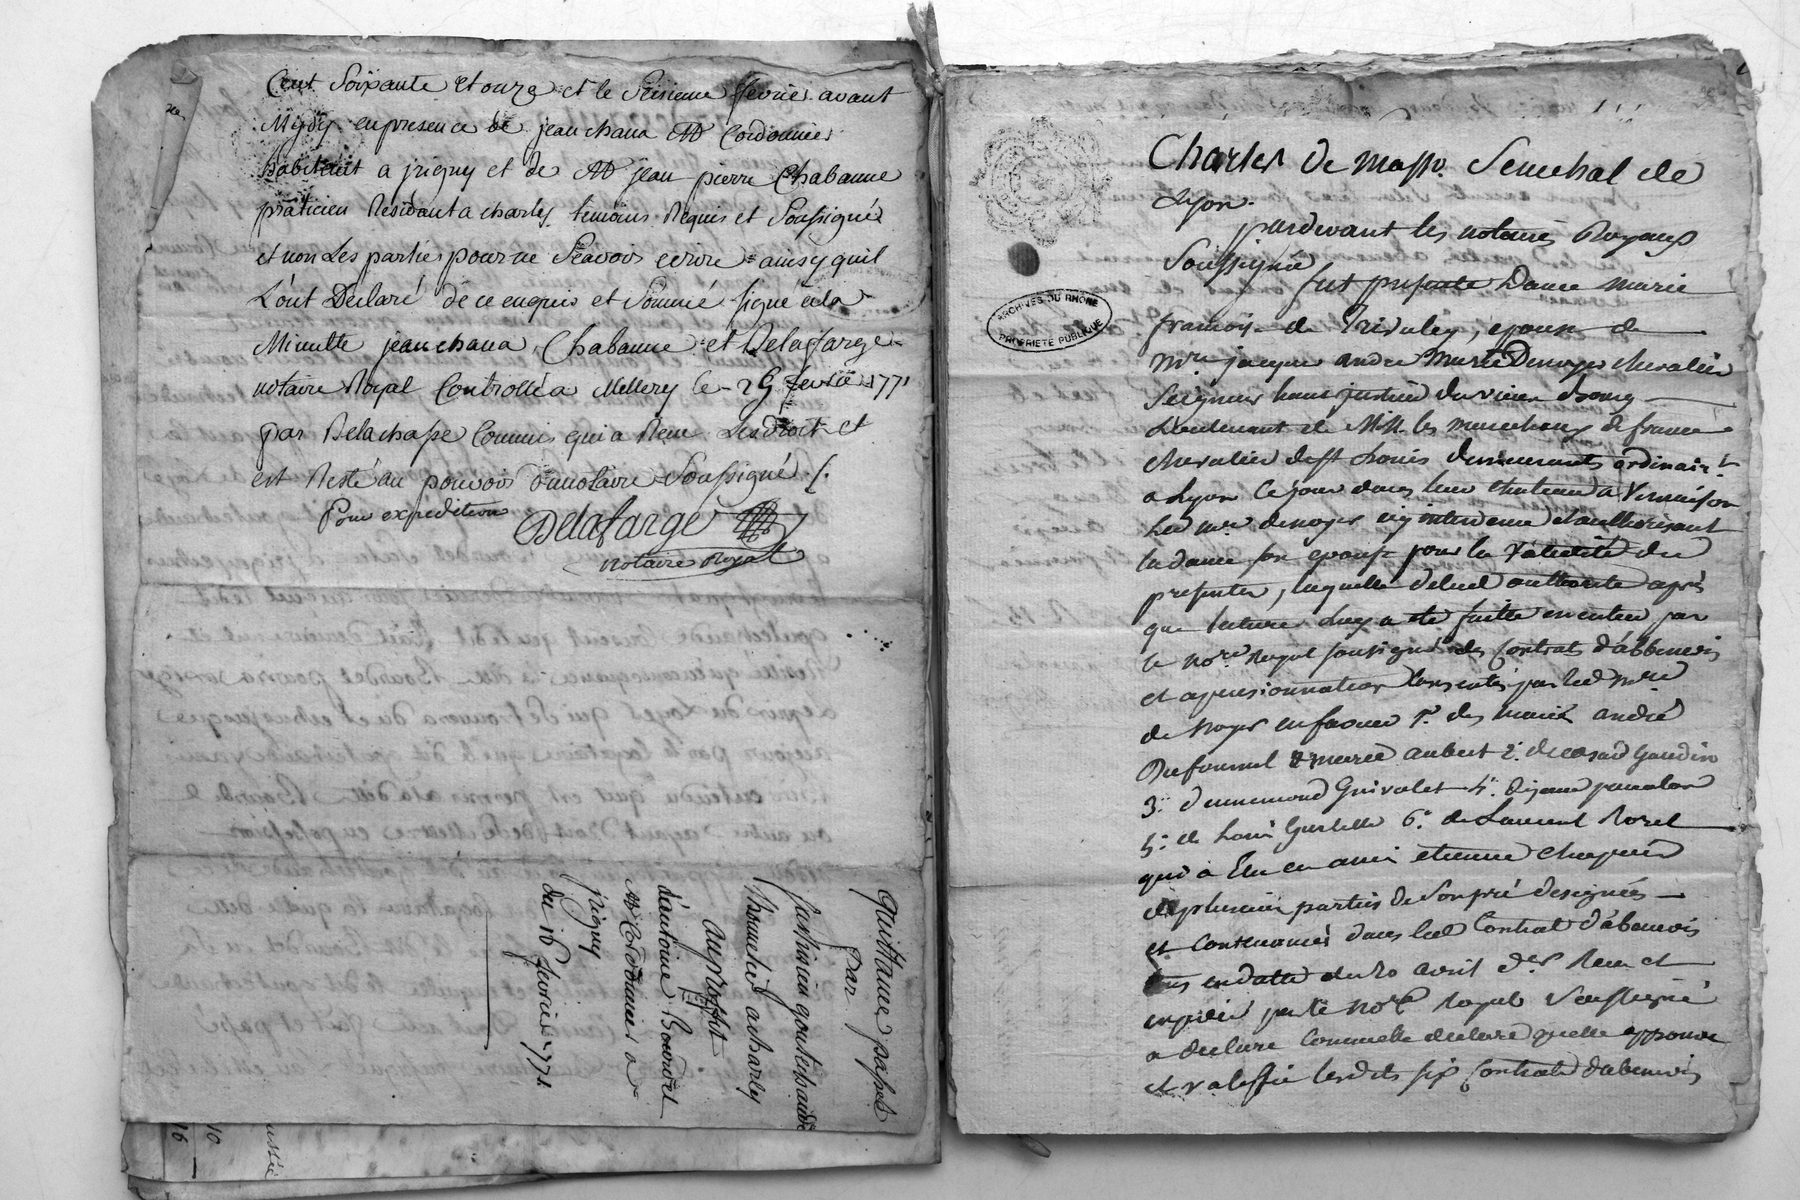 Cent Soixante et onze et le Seizieme fevrier avant
Mydy en presence de jean chana Md Cordonnier
habitant a jrigny et de Md jean pierre Chabanne
praticien Residant a charly temoins Requis et Soussignés
et non Les parties pour ne Sçavoir ecrire ainsy quil
L'ont Declaré de ce enquis et Sommé signé a la
Minutte jean chana, Chabanne et Delafarge
notaire Royal Controllé a Millery le 29 fevrier 1771
par Delachasse Commis qui a Receu Les droits et
est Resté au pouvoir dunotaire Soussigné
Pour expedition
Delafarge
notaire Royal
quittance passée
par
gontechaude
Thonnelier a charly
au proffit
d'antoine Bourdet
Md Cordonnier a
jrigny
du 16 fevrier 1771
16
10
Charles de Masso Senechal de
Lyon
pardevant les notaires Royaux
Soussignes
fut presente Dame Marie
françoise de Trivuley, epouse de
Mre jacques andre Marie Denoyer chevalier
Seigneur haut justicier du vieux bourg
Lieutenant de MM. les marechaux de france
chevalier de St Louis demeurants ordinairt
a Lyon ce jour dans leur chateau a Vernaison
Led mre denoyer icy intervenu et authorisant
la dame son epouse pour la validité du
presentes, laquelle debuel authorité après
que lecture luy a été faitte en entier par
le nore Royal soussigné des Contrats d'abbenevis
et apensionnation consentis par led mre
de noyer en faveur 1° des mariés andré
Dufournel & marie aubert 2° de Gaudin
3° dennemond Grivolet 4° de jean
5° de Louis 6° de Laurent Morel
qui a Elu en ami etienne
de plusieurs parties de Son pré designées
et Contenances dans led Contrat d'abenevis
tous en datte du 20 avril der Receu et
expedié par le Nore Royal Soussigné
a declaré Comme elle declare quelle approuve
et ratiffie lesdits six Contrats dabenevis
ARCHIVES DU RHÔNE
PROPRIÉTÉ PUBLIQUE